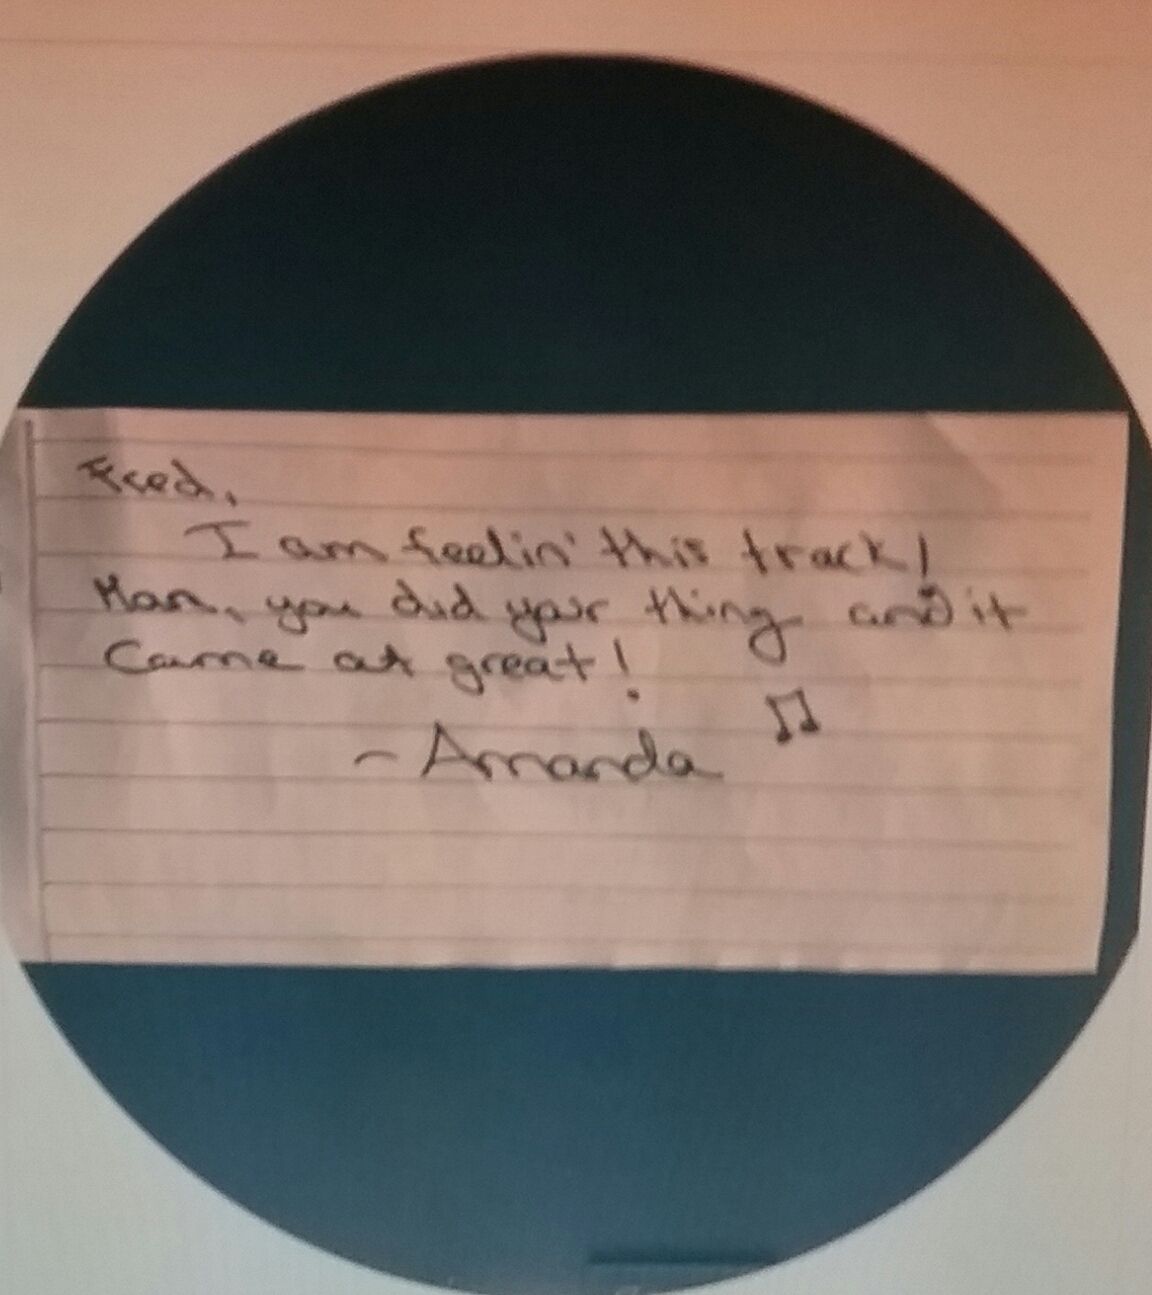 Fred,
I am feelin' this track!
Man, you did your thing and it
Came out great!
- Amanda